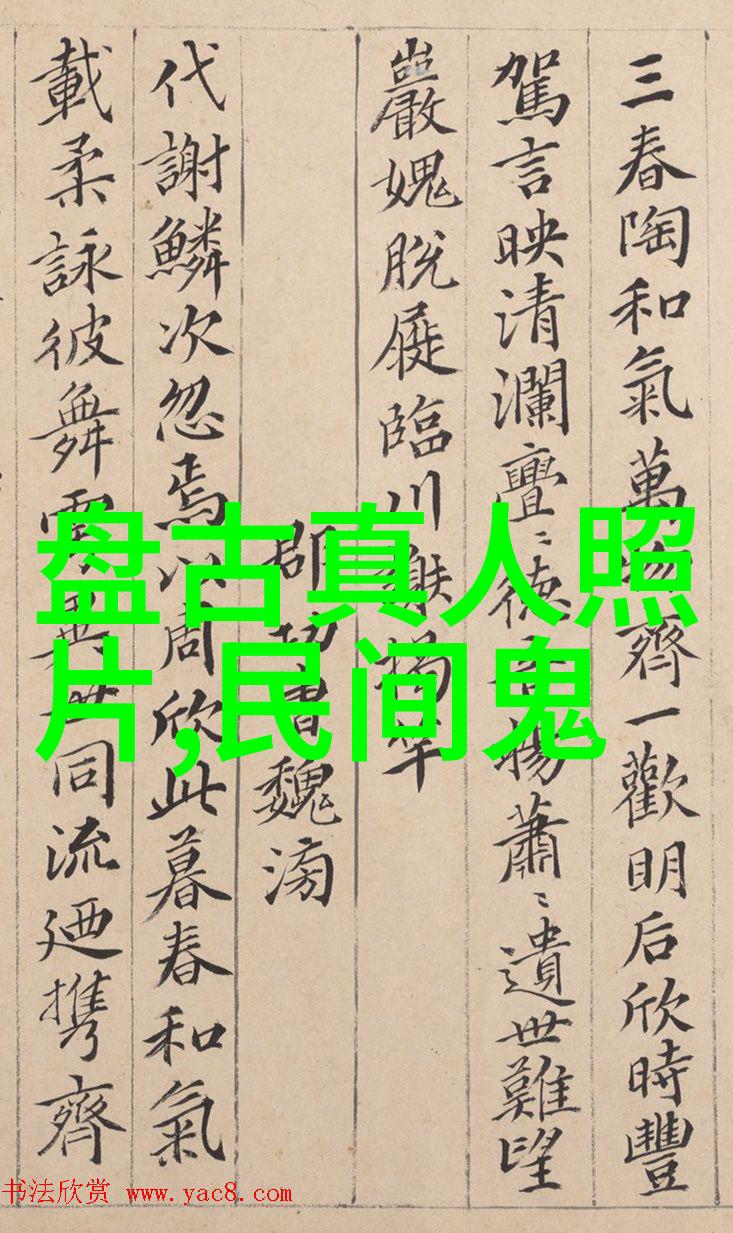 三春陶和氣萬物齊一歡明后欣時豐
駕言映清瀾亹〻德音暢蕭〻遺世難望
巖媿脫屣臨川謝揭竿
郡功曹魏滂
代謝鱗次忽焉以周欣此暮春和氣
載柔詠彼舞雩異世同流廼攜齊
盘古真人照
片,民间鬼
书法欣赏 www.yac8.com